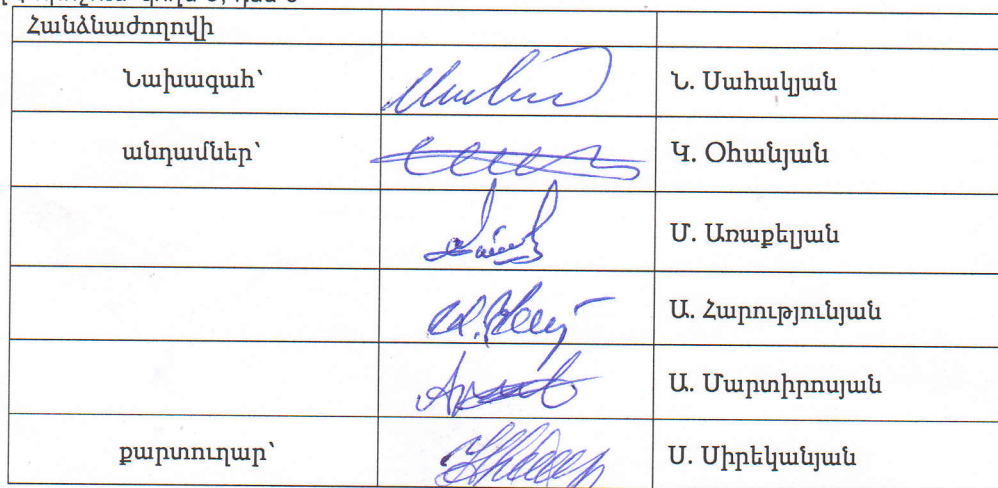 Հանձնաժողովի
Նախագահ՝ Ն. Սահակյան
անդամներ՝ Կ. Օհանյան
Մ. Առաքելյան
Ա. Հարությունյան
Ա. Մարտիրոսյան
քարտուղար՝ Ս. Սիրեկանյան